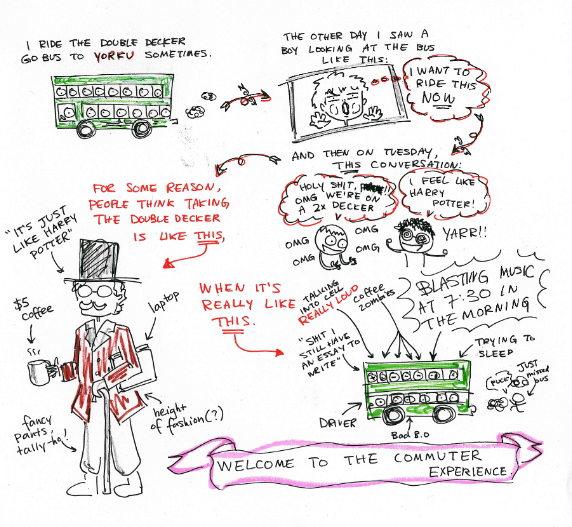 I RIDE THE DOUBLE DECKER
GO BUS TO YORKU SOMETIMES.
THE OTHER DAY I SAW A
BOY LOOKING AT THE BUS
LIKE THIS:
I WANT TO
RIDE THIS
NOW
AND THEN ON TUESDAY,
THIS CONVERSATION:
HOLY SHIT,
OMG WE'RE ON
A 2X DECKER
I FEEL LIKE
HARRY
POTTER!
OMG
OMG
OMG
OMG
YARR!!
FOR SOME REASON,
PEOPLE THINK TAKING
THE DOUBLE DECKER
IS LIKE THIS,
"IT'S JUST
LIKE HARRY
POTTER"
$5
COFFEE
laptop
fancy
pants,
tally-ho!
height
of fashion(?)
WHEN IT'S
REALLY LIKE
THIS.
TALKING
INTO CELL
REALLY LOUD
COFFEE
ZOMBIES
BLASTING MUSIC
AT 7:30 IN
THE MORNING
"SHIT I
STILL HAVE
AN ESSAY TO
WRITE"
TRYING TO
SLEEP
FUCK
JUST
missed
bus
DRIVER
Bad B.O
WELCOME TO THE COMMUTER
EXPERIENCE.